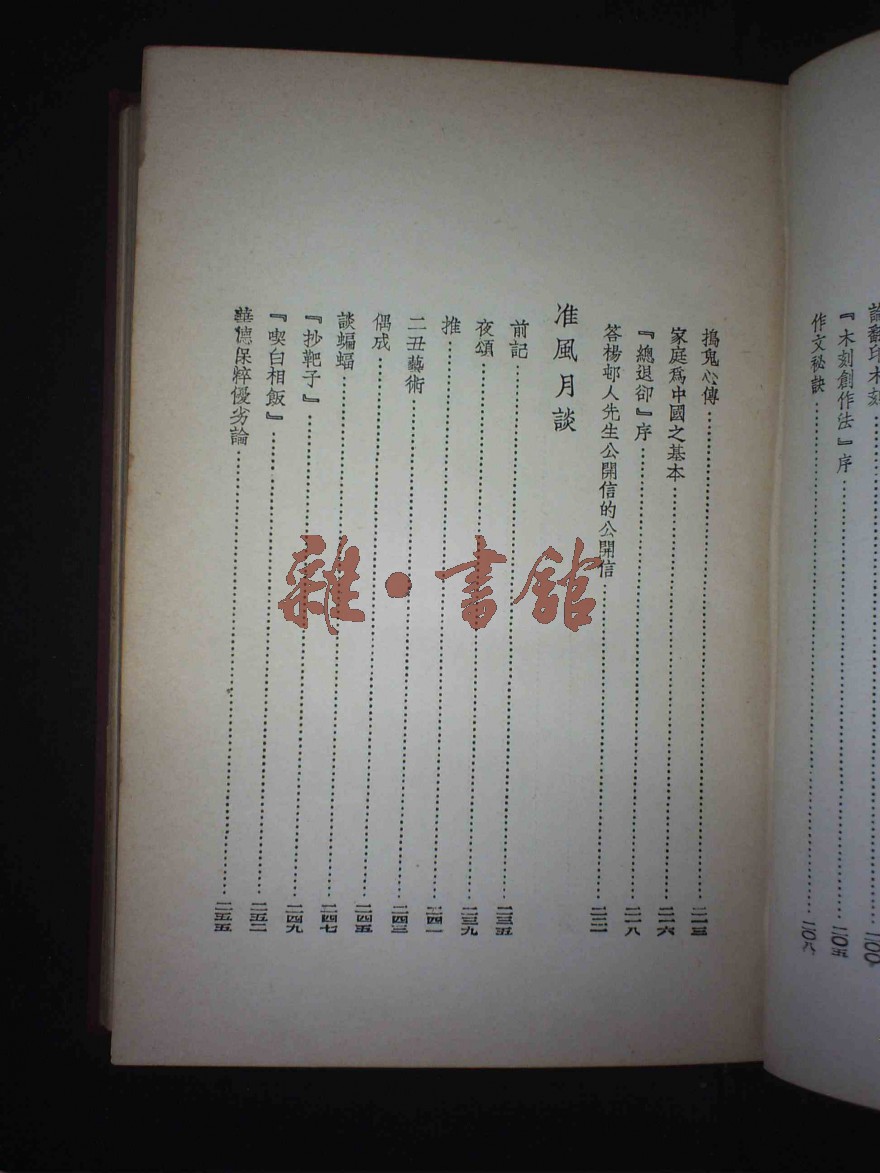 論翻印木刻……二〇〇
『木刻創作法』序……二〇五
作文秘訣……二〇八
搗鬼心傳……二一三
家庭爲中國之基本……二一六
『總退卻』序……二一八
答楊邨人先生公開信的公開信……二二一
准風月談
前記……二三五
夜頌……二三九
推……二四一
二丑藝術……二四三
偶成……二四五
談蝙蝠……二四七
『抄靶子』……二四九
『喫白相飯』……二五二
華德保粹優劣論……二五五
雜·書館